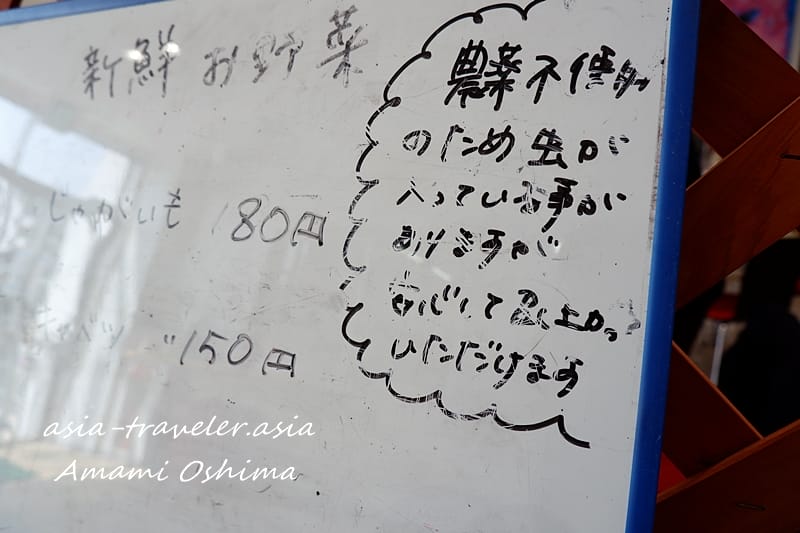 新鮮お野菜
じゃがいも 180円
キャベツ 〃150円
農薬不使用
のため虫が
入っている事が
ありますが
安心して召し上がって
いただけます
asia-traveler.asia
Amami Oshima